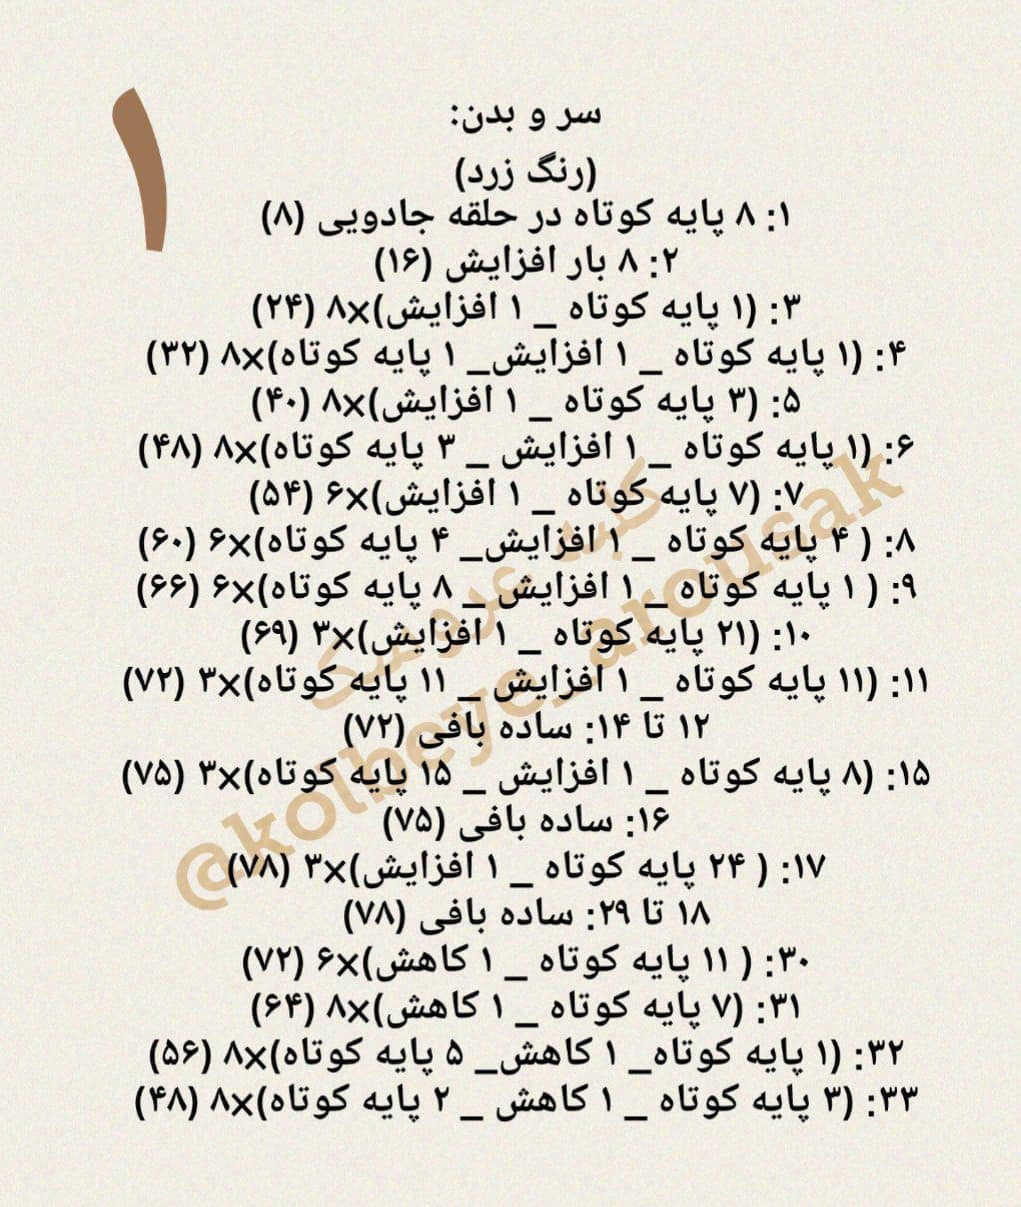 ۱
سر و بدن:
(رنگ زرد)
۱: ۸ پایه کوتاه در حلقه جادویی (۸)
۲: ۸ بار افزایش (۱۶)
۳: (۱ پایه کوتاه _ ۱ افزایش)×۸ (۲۴)
۴: (۱ پایه کوتاه _ ۱ افزایش_ ۱ پایه کوتاه)×۸ (۳۲)
۵: (۳ پایه کوتاه _ ۱ افزایش)×۸ (۴۰)
۶: (۱ پایه کوتاه _ ۱ افزایش _ ۳ پایه کوتاه)×۸ (۴۸)
۷: (۷ پایه کوتاه _ ۱ افزایش)×۶ (۵۴)
۸: ( ۴ پایه کوتاه _ ۱ افزایش_ ۴ پایه کوتاه)×۶ (۶۰)
۹: ( ۱ پایه کوتاه _ ۱ افزایش _ ۸ پایه کوتاه)×۶ (۶۶)
۱۰: (۲۱ پایه کوتاه _ ۱ افزایش)×۳ (۶۹)
۱۱: (۱۱ پایه کوتاه _ ۱ افزایش _ ۱۱ پایه کوتاه)×۳ (۷۲)
۱۲ تا ۱۴: ساده بافی (۷۲)
۱۵: (۸ پایه کوتاه _ ۱ افزایش _ ۱۵ پایه کوتاه)×۳ (۷۵)
۱۶: ساده بافی (۷۵)
۱۷: ( ۲۴ پایه کوتاه _ ۱ افزایش)×۳ (۷۸)
۱۸ تا ۲۹: ساده بافی (۷۸)
۳۰: ( ۱۱ پایه کوتاه _ ۱ کاهش)×۶ (۷۲)
۳۱: (۷ پایه کوتاه _ ۱ کاهش)×۸ (۶۴)
۳۲: (۱ پایه کوتاه_ ۱ کاهش_ ۵ پایه کوتاه)×۸ (۵۶)
۳۳: (۳ پایه کوتاه _ ۱ کاهش _ ۲ پایه کوتاه)×۸ (۴۸)
کلبه عروسک
@kolbeye_arousak